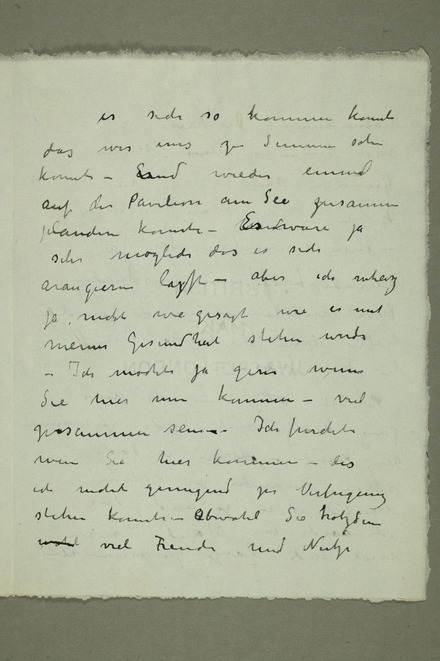 es sich so kommen konnte
das wir uns zu Sommer sehn
konnte – und wieder einmal
auf der Pavilion am See zusamm
plaudern konnte – Es wäre ja
sehr möglich das es sich
arangieren lasst – aber ich
ja, nicht wie gesagt wie es mit
meiner Gesundheit stehen wird
– Ich möchte ja gern wenn
Sie hier nun kommen – viel
zusammen sein – Ich fürchte
wenn Sie hier kommen – das
ich nicht genugend zur Verfugung
stehen konnte – obwohl Sie trotzdem
viel Freude und